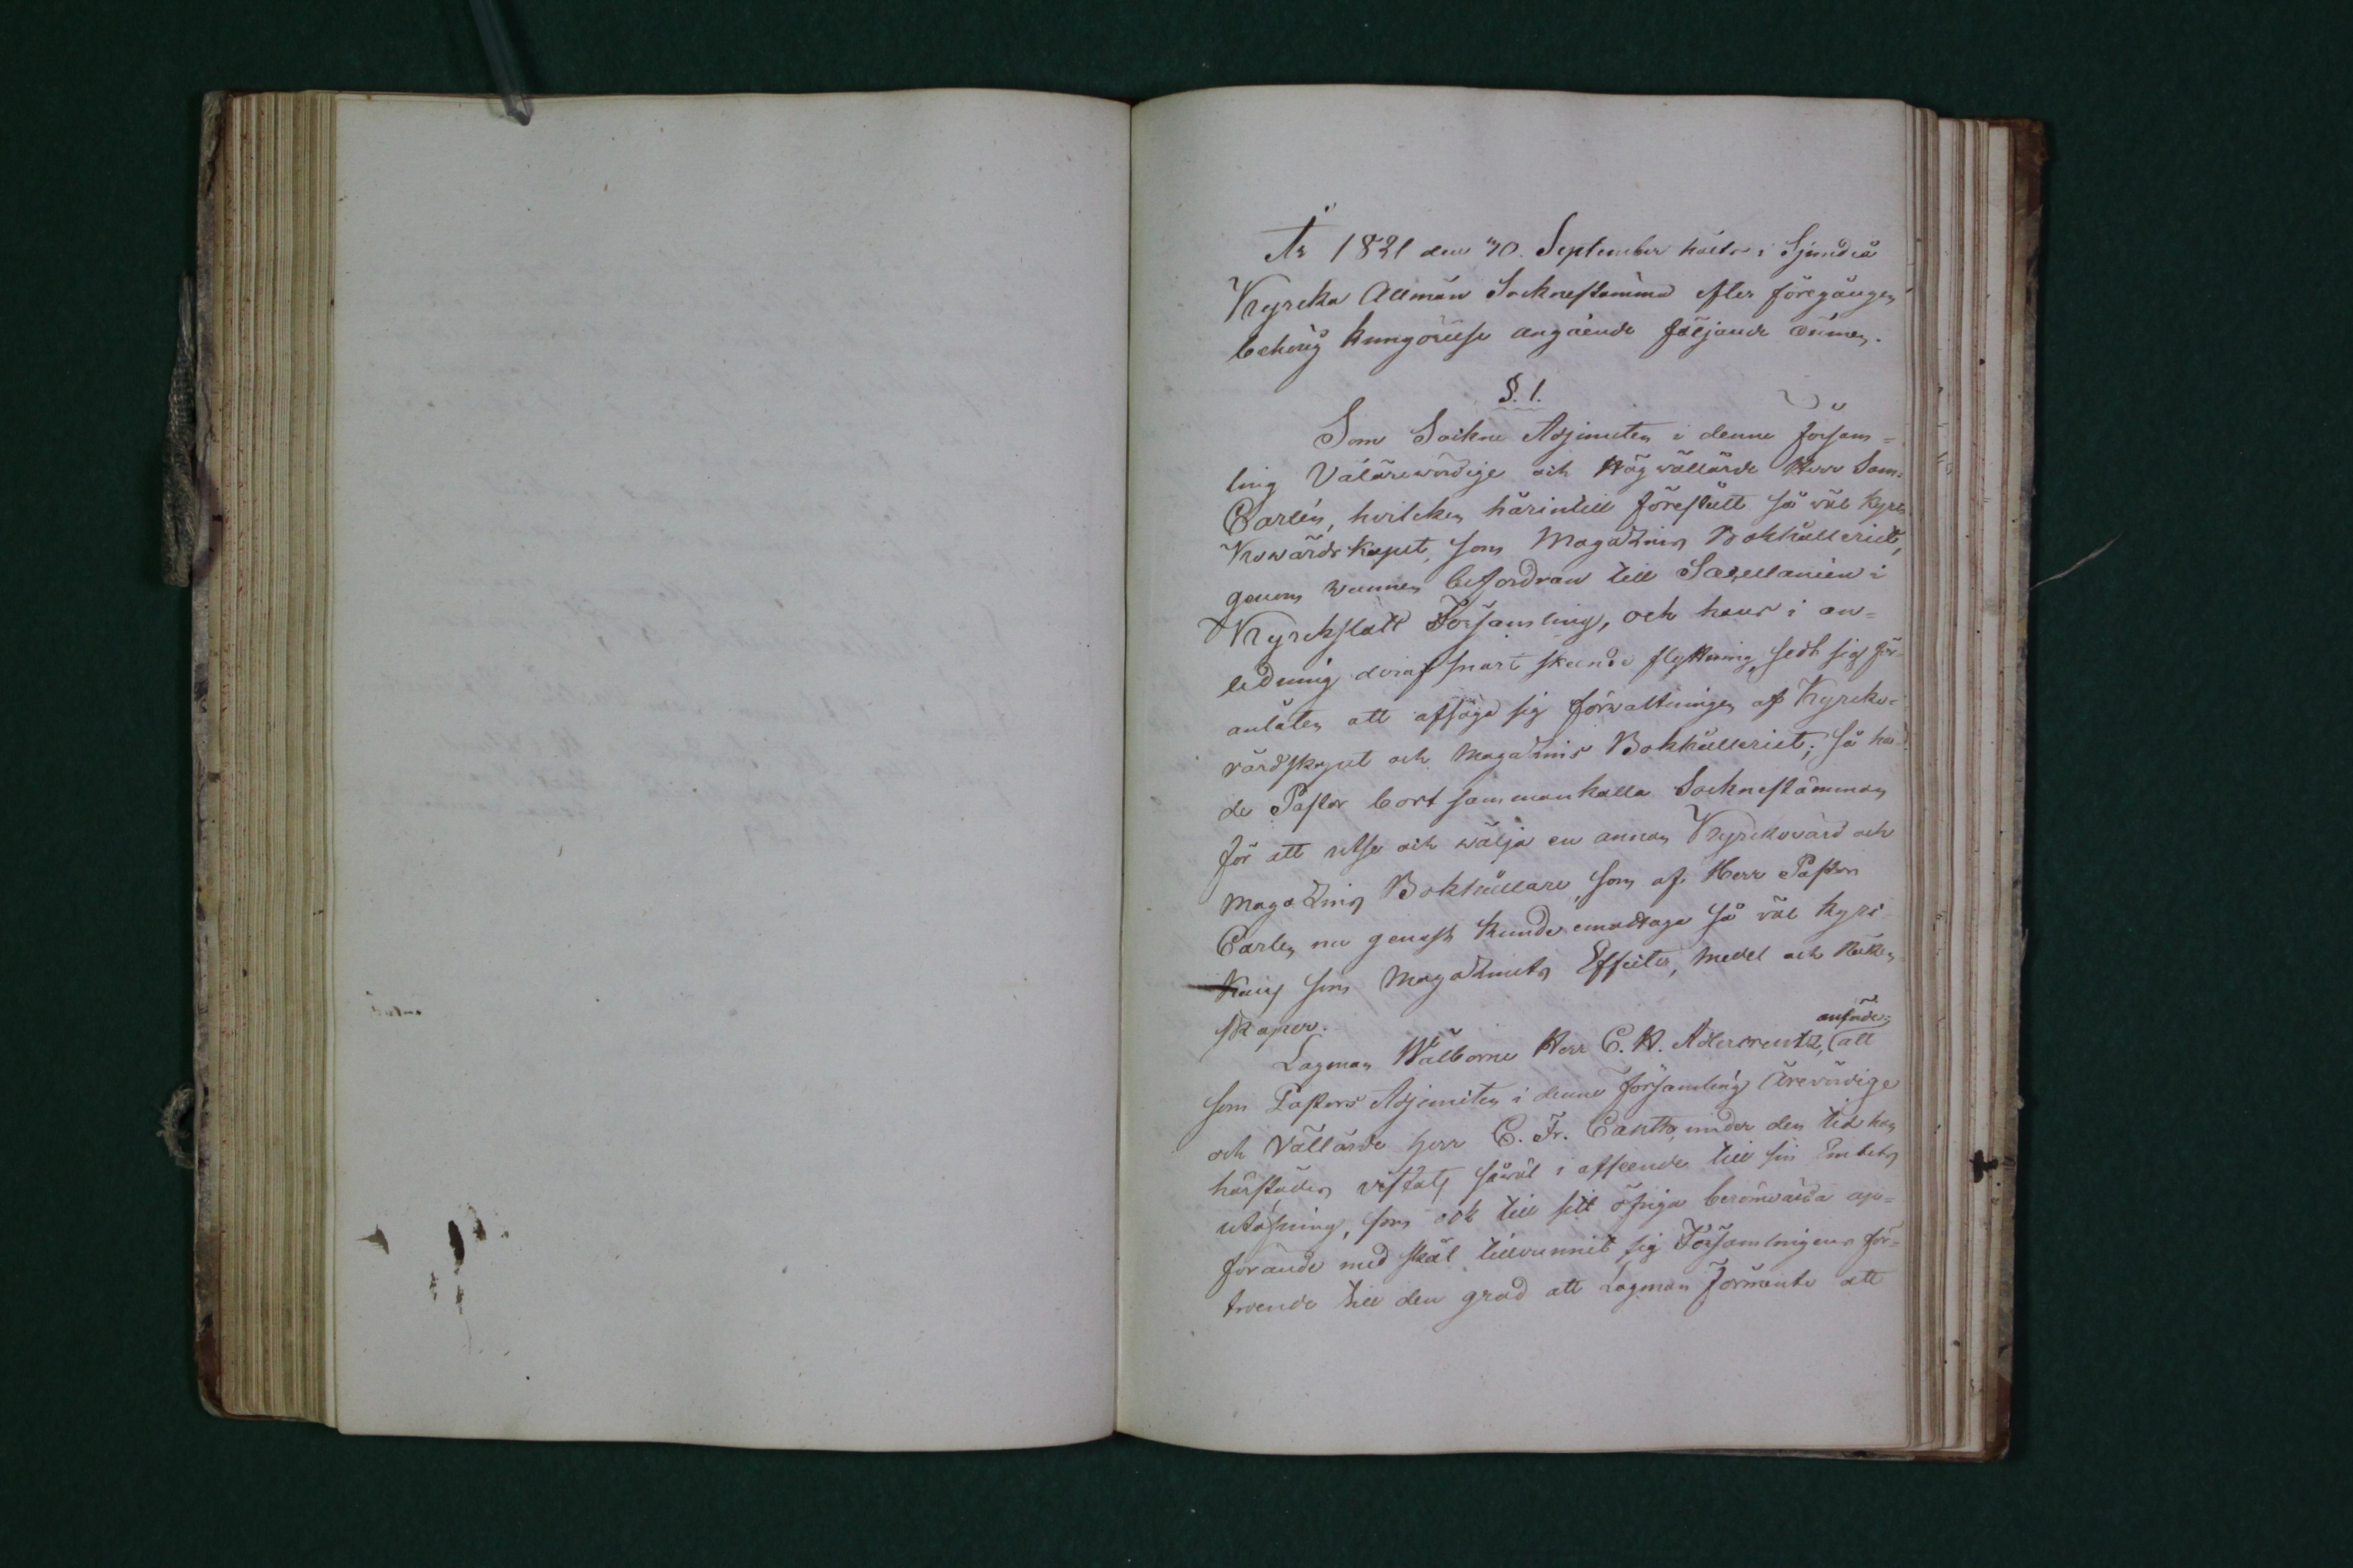 År 1821 den 30. September hölts i Sjundeå
Kyrcka Allmän Socknestämma efter föregången
behörig kungörelse angående följande ämnen.
§. 1.
Som Sockne Adjuncten i denne Försam=
ling Välärewördige och Högwällärde Herr Sam.
Carlén, hvilcken härintill förestått så wäl Kyrc
kowärdskapet, som Magazins Bokhålleriet,
genom wunnen befordran till Sacellanien i
Kyrckslätt Församling, och hans i an=
ledning deraf snart skeende flyttning, sedt sig för=
anlåten att afsäga sig förwaltningen af Kyrcko=
värdskapet och Magazins Bokhålleriet; så ha=
de Pastor bort sammankalla Socknestämman
för att utse och wälja en annan Kyrckovärd och
Magazins Bokhållare, som af Herr Pastor
Carlén nu genast kunde emottaga så väl Kyrc
kans som Magazinets Effecter, Medel och Räken
skaper.
Lagman Wälborne Herr C. H. Adlercreutz, anförde; att
som Pastors Adjuncten i denne Församling Ärevördige
och Vällärde Herr C. Fr. Canth, under den tid han
härstädes vistats såwäl i afseende till sin Embets
utöfning, som ock till sitt öfriga berömvärda up=
förande med skäl tillvunnit sig Församlingens för=
troende till den grad att Lagman förmente att